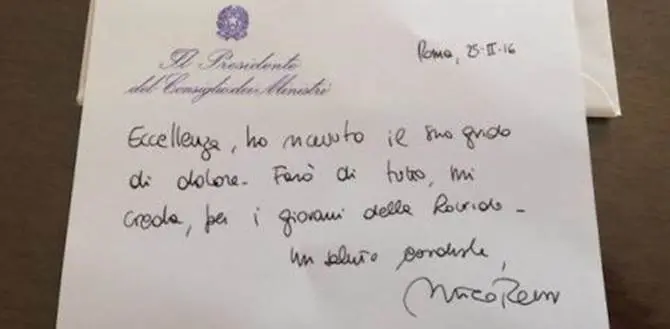 Il Presidente
del Consiglio dei Ministri
Roma, 25-II-16
Eccellenza, ho ricevuto il suo grido
di dolore. Farò di tutto, mi
creda, per i giovani della Locride.
Un saluto cordiale,